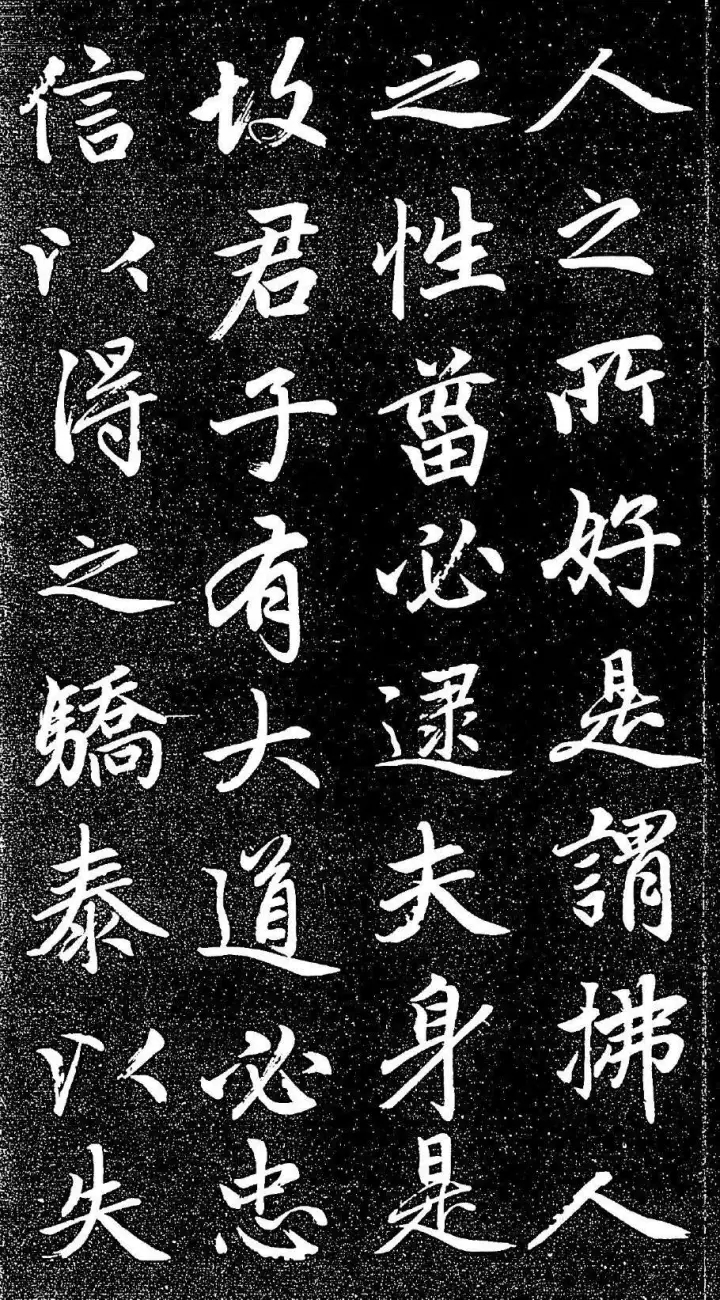 人之所好是謂拂人
之性菑必逮夫身是
故君子有大道必忠
信以得之驕泰以失